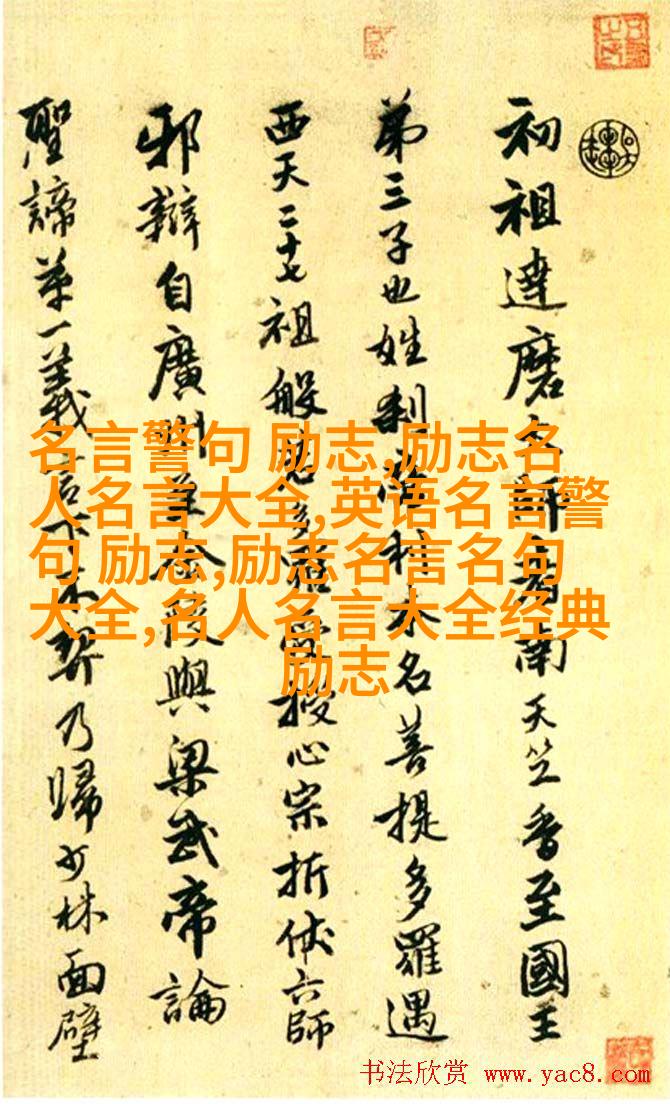 初祖達磨大師者南天竺香至國王
第三子也姓刹帝利本名菩提多羅遇
西天二十七祖般若多羅授心宗折伏六師
邪辯自廣州至金陵與梁武帝論
聖諦第一義言下不契乃歸少林面壁
名言警句 励志,励志名
人名言大全,英语名言警
句 励志,励志名言名句
大全,名人名言大全经典
励志
书法欣赏 www.yac8.com